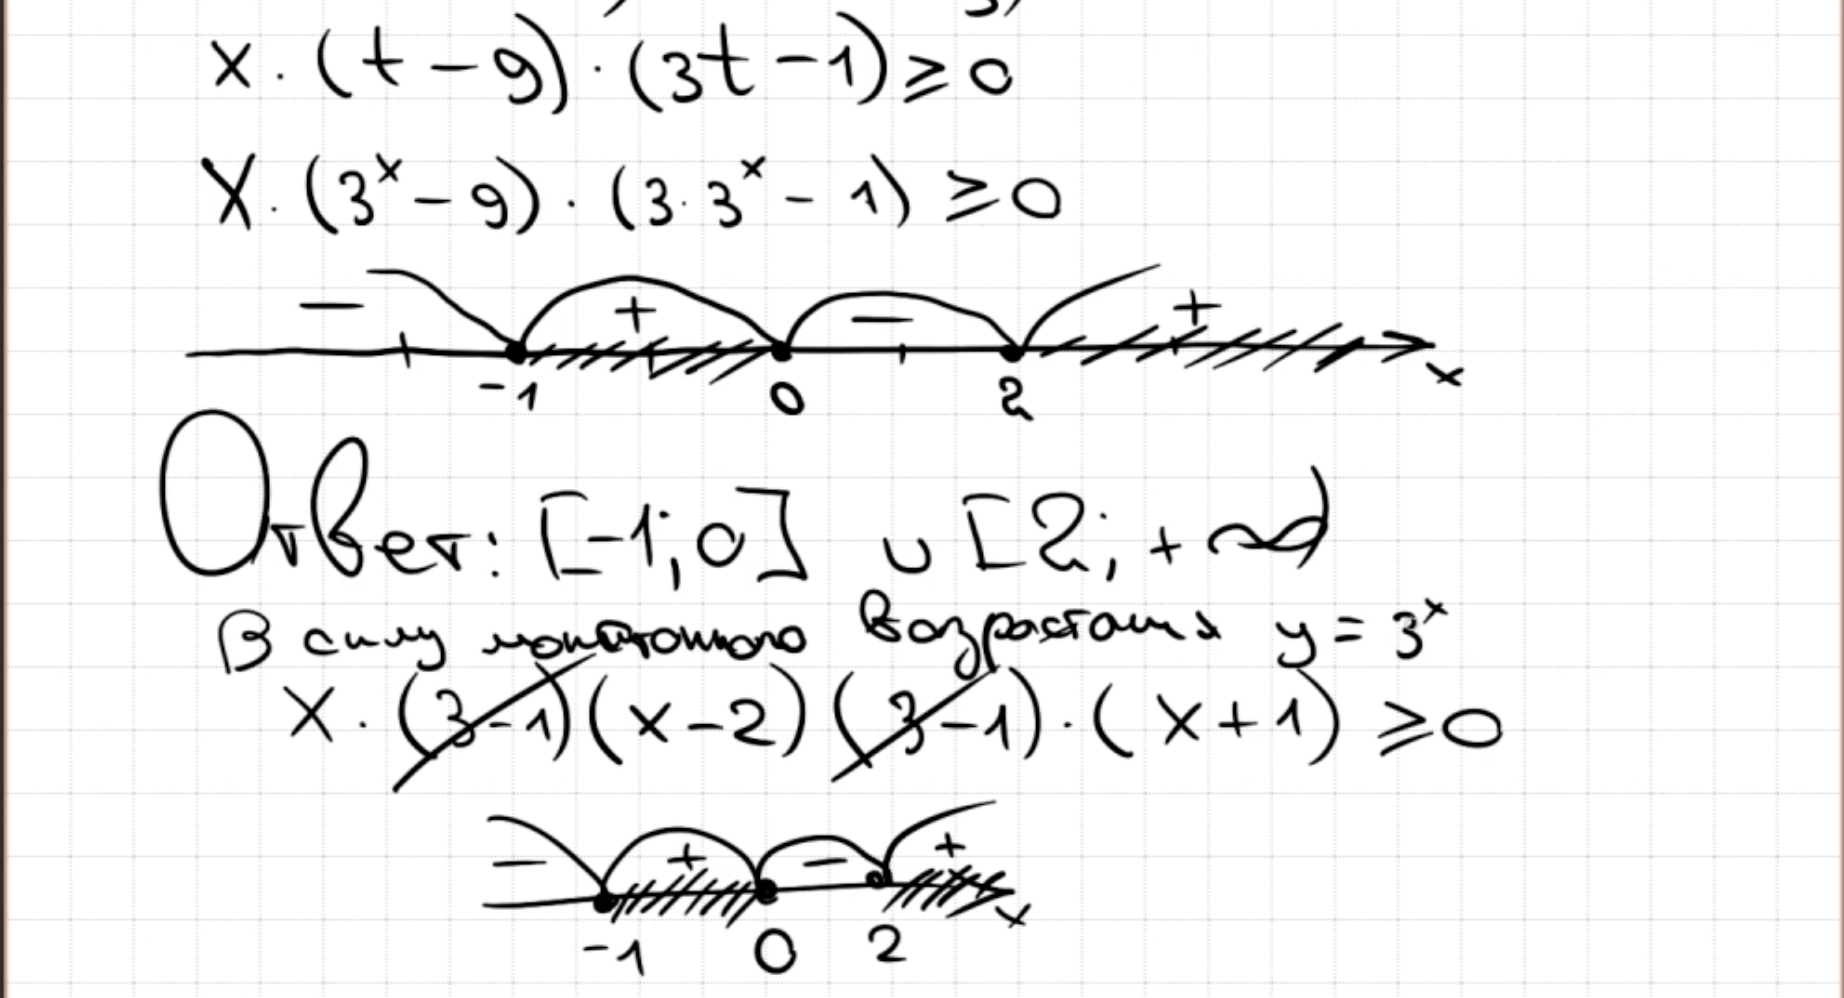 x · (t - 9) · (3t - 1) ≥ 0
X · (3ˣ - 9) · (3 · 3ˣ - 1) ≥ 0
- + - +
-1 0 2 x
Ответ: [-1; 0] ∪ [2; +∞)
В силу монотонного возрастания y = 3ˣ
X · (3-1)(x-2)(3-1) · (x+1) ≥ 0
- + - +
-1 0 2 x